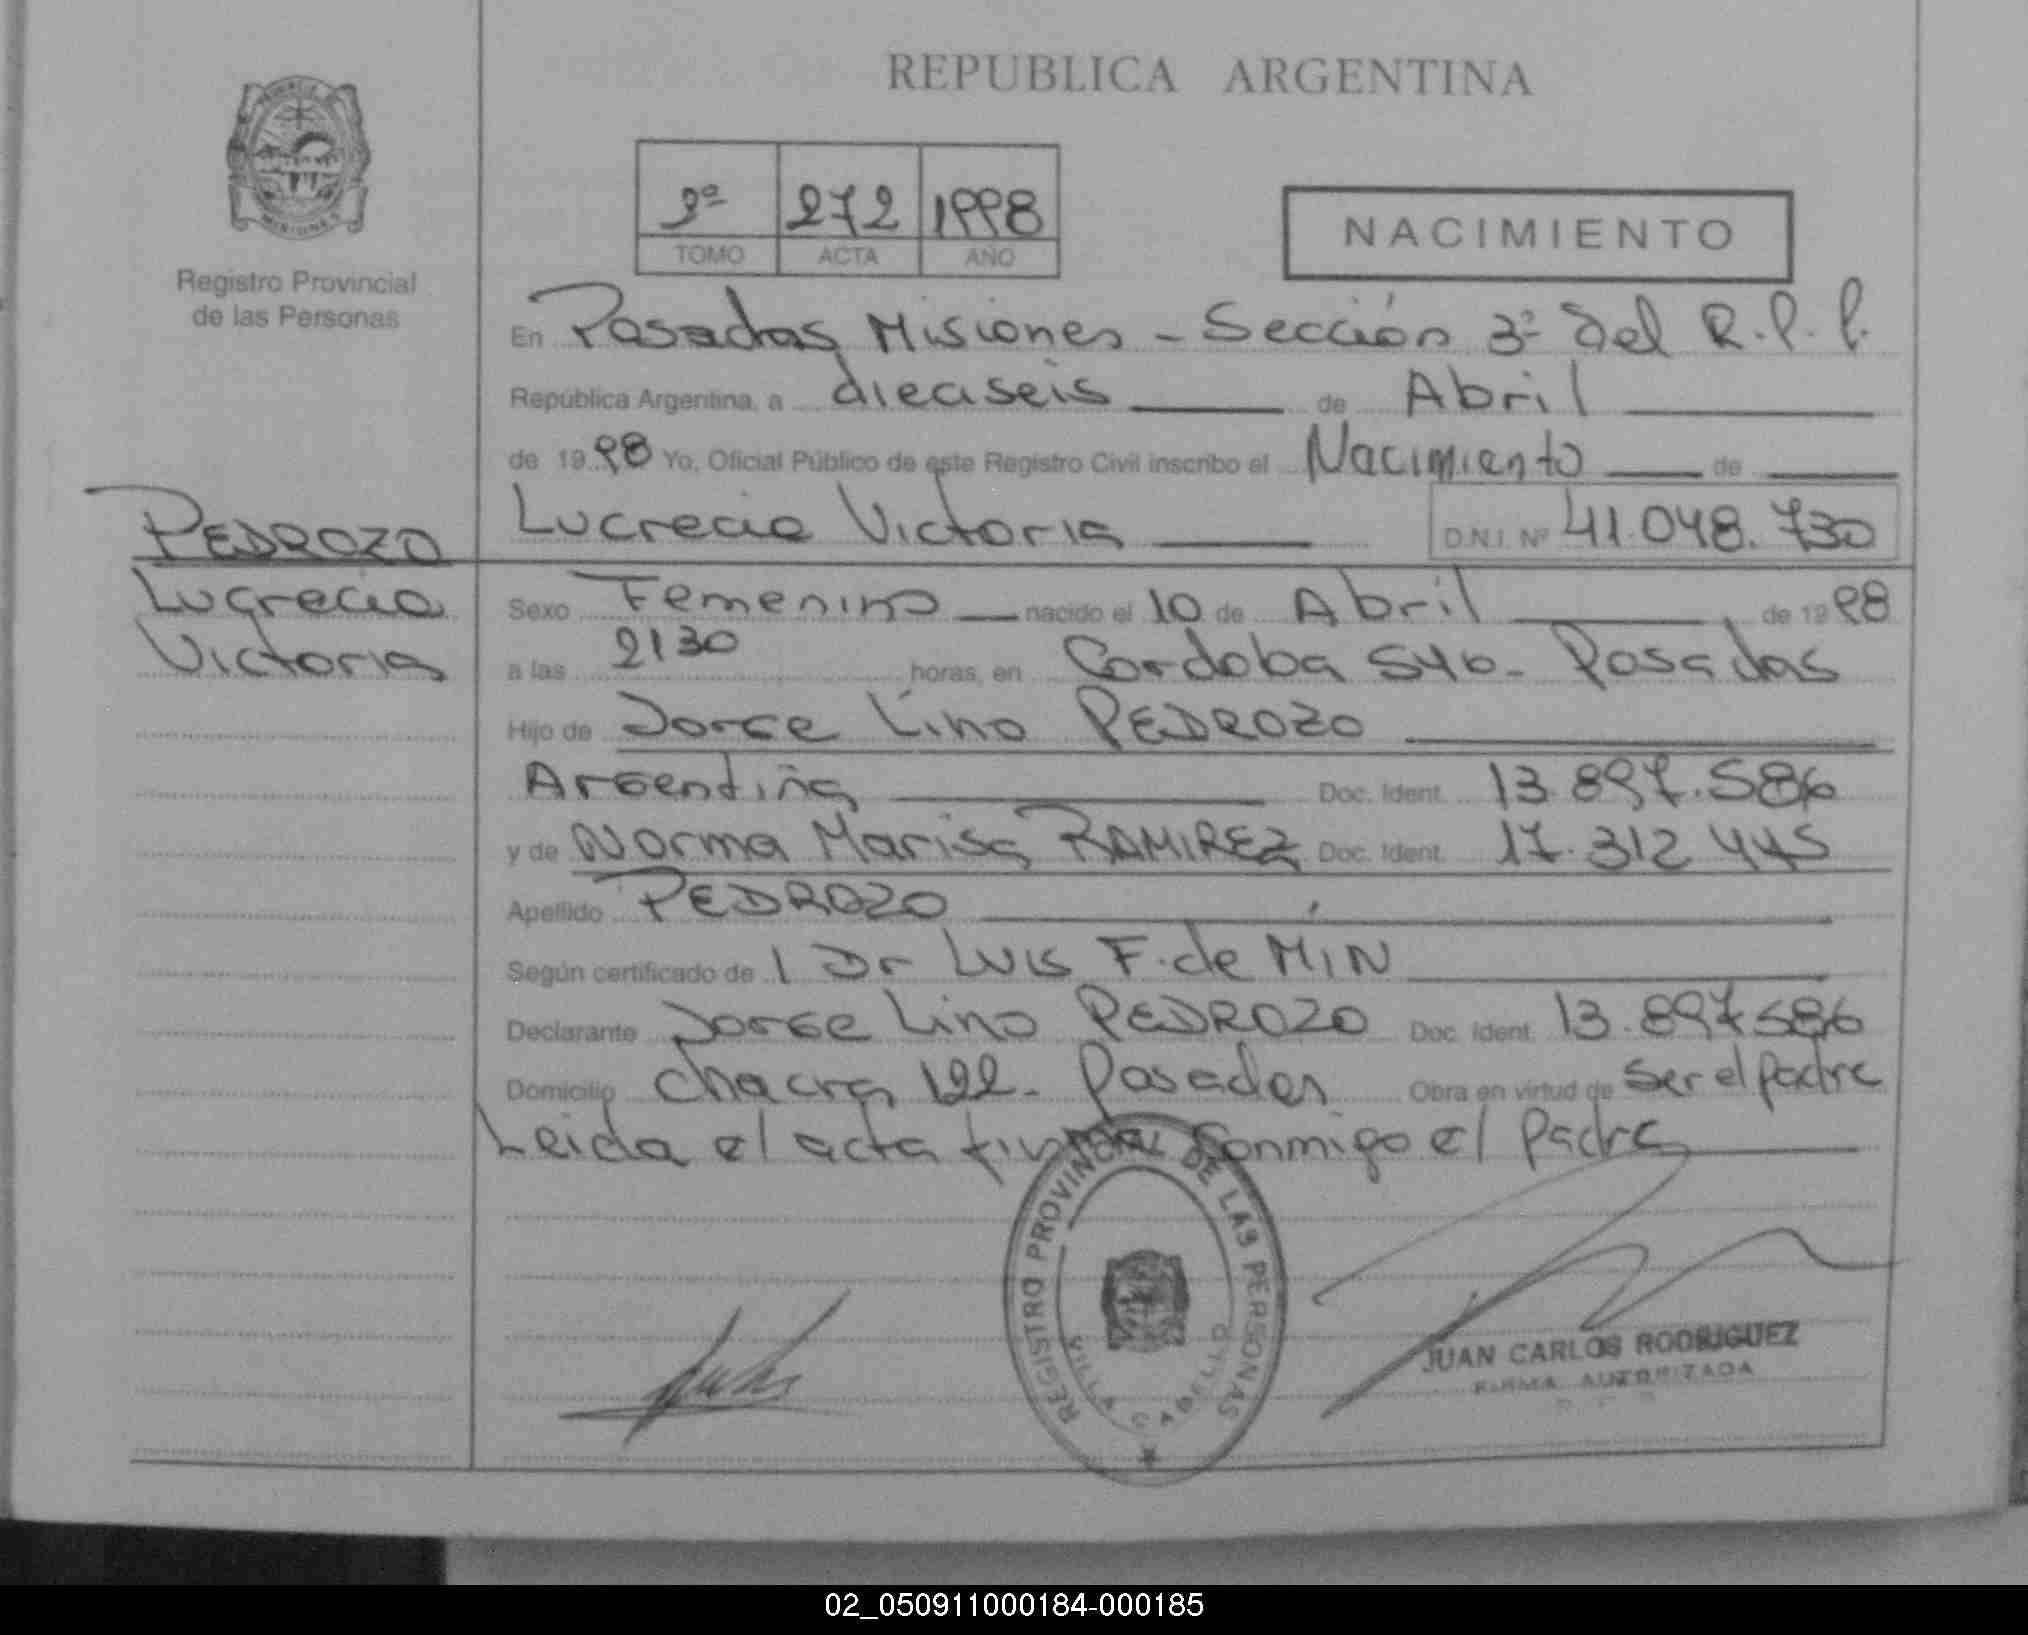 REPUBLICA ARGENTINA
2º 272 1998
TOMO ACTA AÑO
NACIMIENTO
Registro Provincial
de las Personas
En Posadas Misiones - Sección 3ª del R.P.P.
República Argentina, a dieciseis de Abril
de 1998 Yo, Oficial Público de este Registro Civil inscribo el Nacimiento de
PEDROZO
Lucrecia
Victoria
Lucrecia Victoria D.N.I. Nº 41.048.730
Sexo Femenino nacido el 10 de Abril de 1998
a las 2130 horas, en Cordoba 546 - Posadas
Hijo de Jorge Lino PEDROZO
Argentina Doc. Ident. 13.897.586
y de Norma Marisa RAMIREZ Doc. Ident. 17.312 445
Apellido PEDROZO
Según certificado de l Dr Luis F. de MIN
Declarante Jorge Lino PEDROZO Doc. Ident. 13.897586
Domicilio Chacra 122 - Posadas Obra en virtud de ser el padre
Leida el acta firma conmigo el Padre
REGISTRO PROVINCIAL DE LAS PERSONAS
VILLA CABELLO
JUAN CARLOS RODRIGUEZ
FIRMA AUTORIZADA
02_050911000184-000185